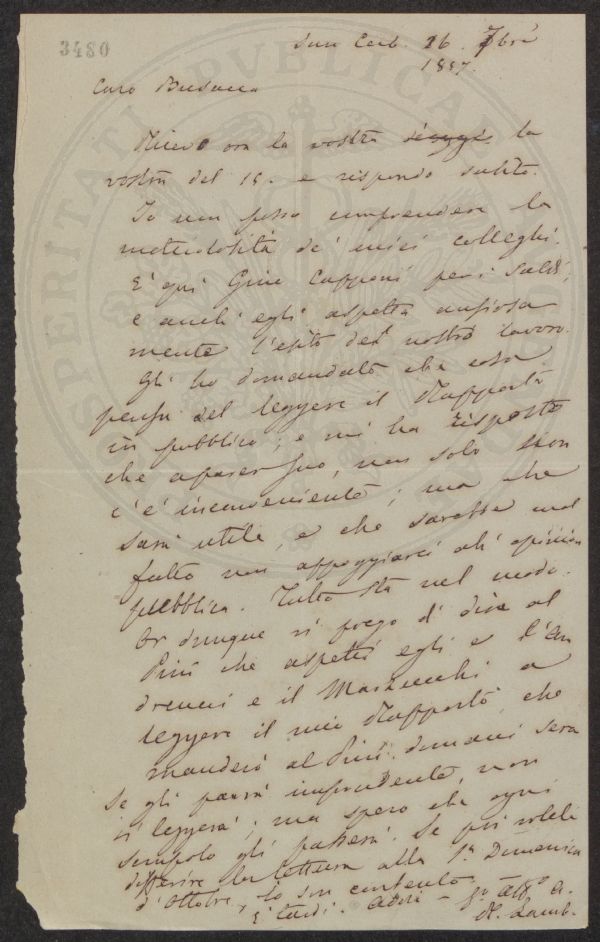 3480
San Cerb. 16 7bre
1837.
Caro Busacca
Ricevo ora la vostra la
vostra del 15. e rispondo subito.
Io non posso comprendere la
meticolosità de' miei colleghi.
E' qui Gino Capponi pei Saldi,
e anch' egli aspetta ansiosa
mente l'esito del nostro lavoro.
Gli ho domandato che cosa
pensa del leggere il Rapporto
in pubblico; e mi ha risposto
che a parer suo, non solo non
c'è inconveniente; ma che
sarà utile, e che sarebbe mal
fatto non appoggiarci all' opinion
pubblica. Tutto sta nel modo.
Or dunque vi prego di dire al
Pini che aspetti egli e l'An
dreucci e il Marzucchi a
leggere il mio Rapporto, che
manderò al Pini domani sera
Se gli parrà imprudente, non
si leggerà; ma spero che ogni
scrupolo gli passerà. Se poi volete
differire la lettura alla 1ª Domenica
d'Ottobre, io son contento.
E' tardi. Addio - Aff.o A.
R. Lamb.